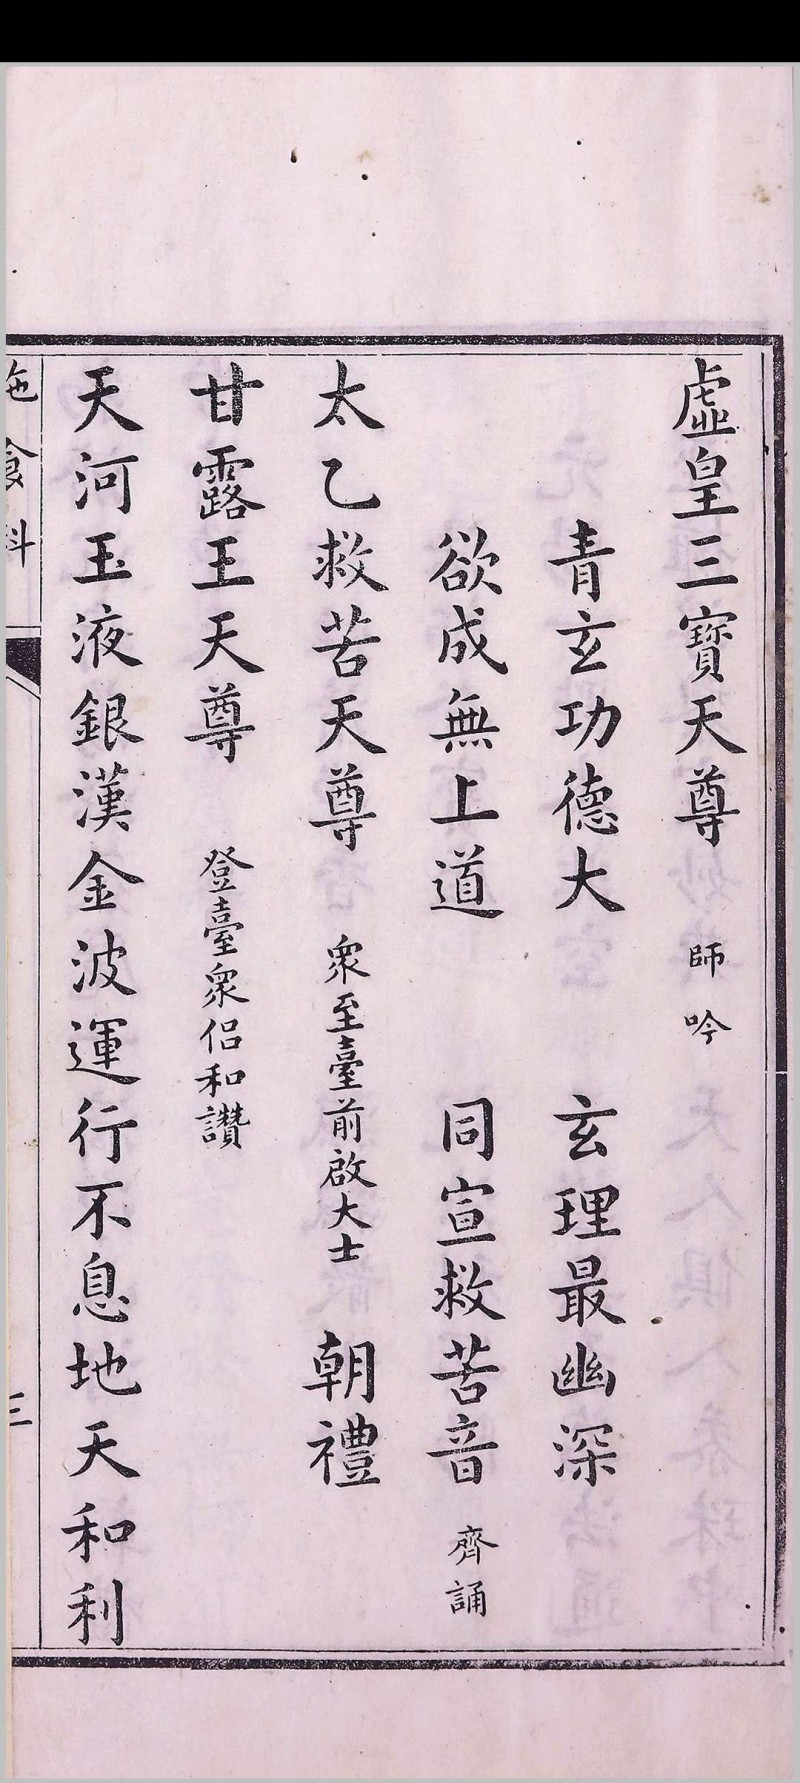 虛皇三寶天尊 師吟
青玄功德大 玄理最幽深
欲成無上道 同宣救苦音 齊誦
太乙救苦天尊 衆至臺前啟大士 朝禮
甘露王天尊 登臺衆侶和讚
天河玉液銀漢金波運行不息地天和利
施食科 三